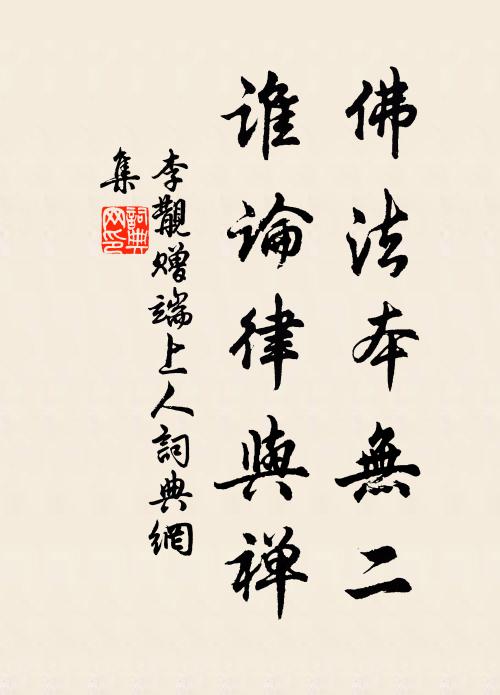 佛法本無二
誰論律與禅
李觀贈端上人詞典網
集
詞典网印